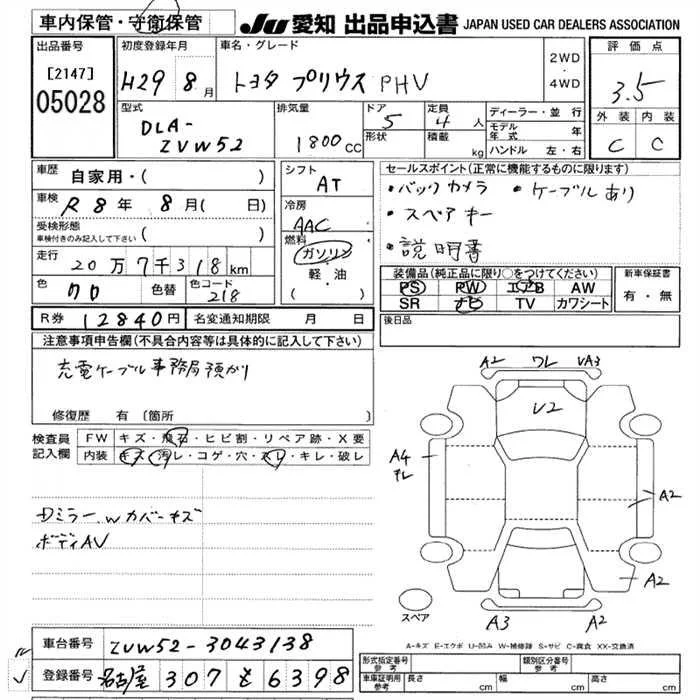 車内保管・守衛保管
JU 愛知 出品申込書 JAPAN USED CAR DEALERS ASSOCIATION
出品番号
[2147]
05028
初度登録年月
H29 8月
車名・グレード
トヨタ プリウス PHV
2WD
・
4WD
評価点
3.5
外装 内装
C C
型式
DLA-
ZVW52
排気量
1800 CC
ドア
5
形状
定員
4人
積載 kg
ディーラー・並 行
モデル年式 年
ハンドル 左・右
車歴
自家用・( )
車検
R 8年 8月( 日)
受検形態
車検付きのみ記入して下さい ( )
走行
20万7千318km
色
クロ
色替
色コード
218
シフト
AT
冷房
AAC
燃料
ガソリン
軽・油
( )
セールスポイント(正常に機能するものに限ります)
・バックカメラ ・ケーブルあり
・スペアキー
・説明書
装備品(純正品に限り○をつけてください)
PS PW エアB AW
SR ナビ TV カワシート
新車保証書
有・無
R券 12840円 名変通知期限 月 日
後日品
注意事項申告欄(不具合内容等は具体的に記入して下さい)
充電ケーブル事務局預かり
修復歴 有 (箇所 )
検査員記入欄
FW キズ・飛石・ヒビ割・リペア跡・X要
内装 キズ・汚レ・コゲ・穴・スレ・キレ・破レ
Dミラー.wカバーキズ
ボディAV
A2 ワレ VA3
V2
A4
A2
A2
A3 A2
スペア
A-キズ E-エクボ U-凹み W-補修跡 S-サビ C-腐食 XX-交換済
車台番号 ZVW52-3043138
登録番号 名古屋 307 も 6398
形式指定番号 参考
類別区分番号 参考
車庫証明用 参考
長さ cm 幅 cm 高さ cm